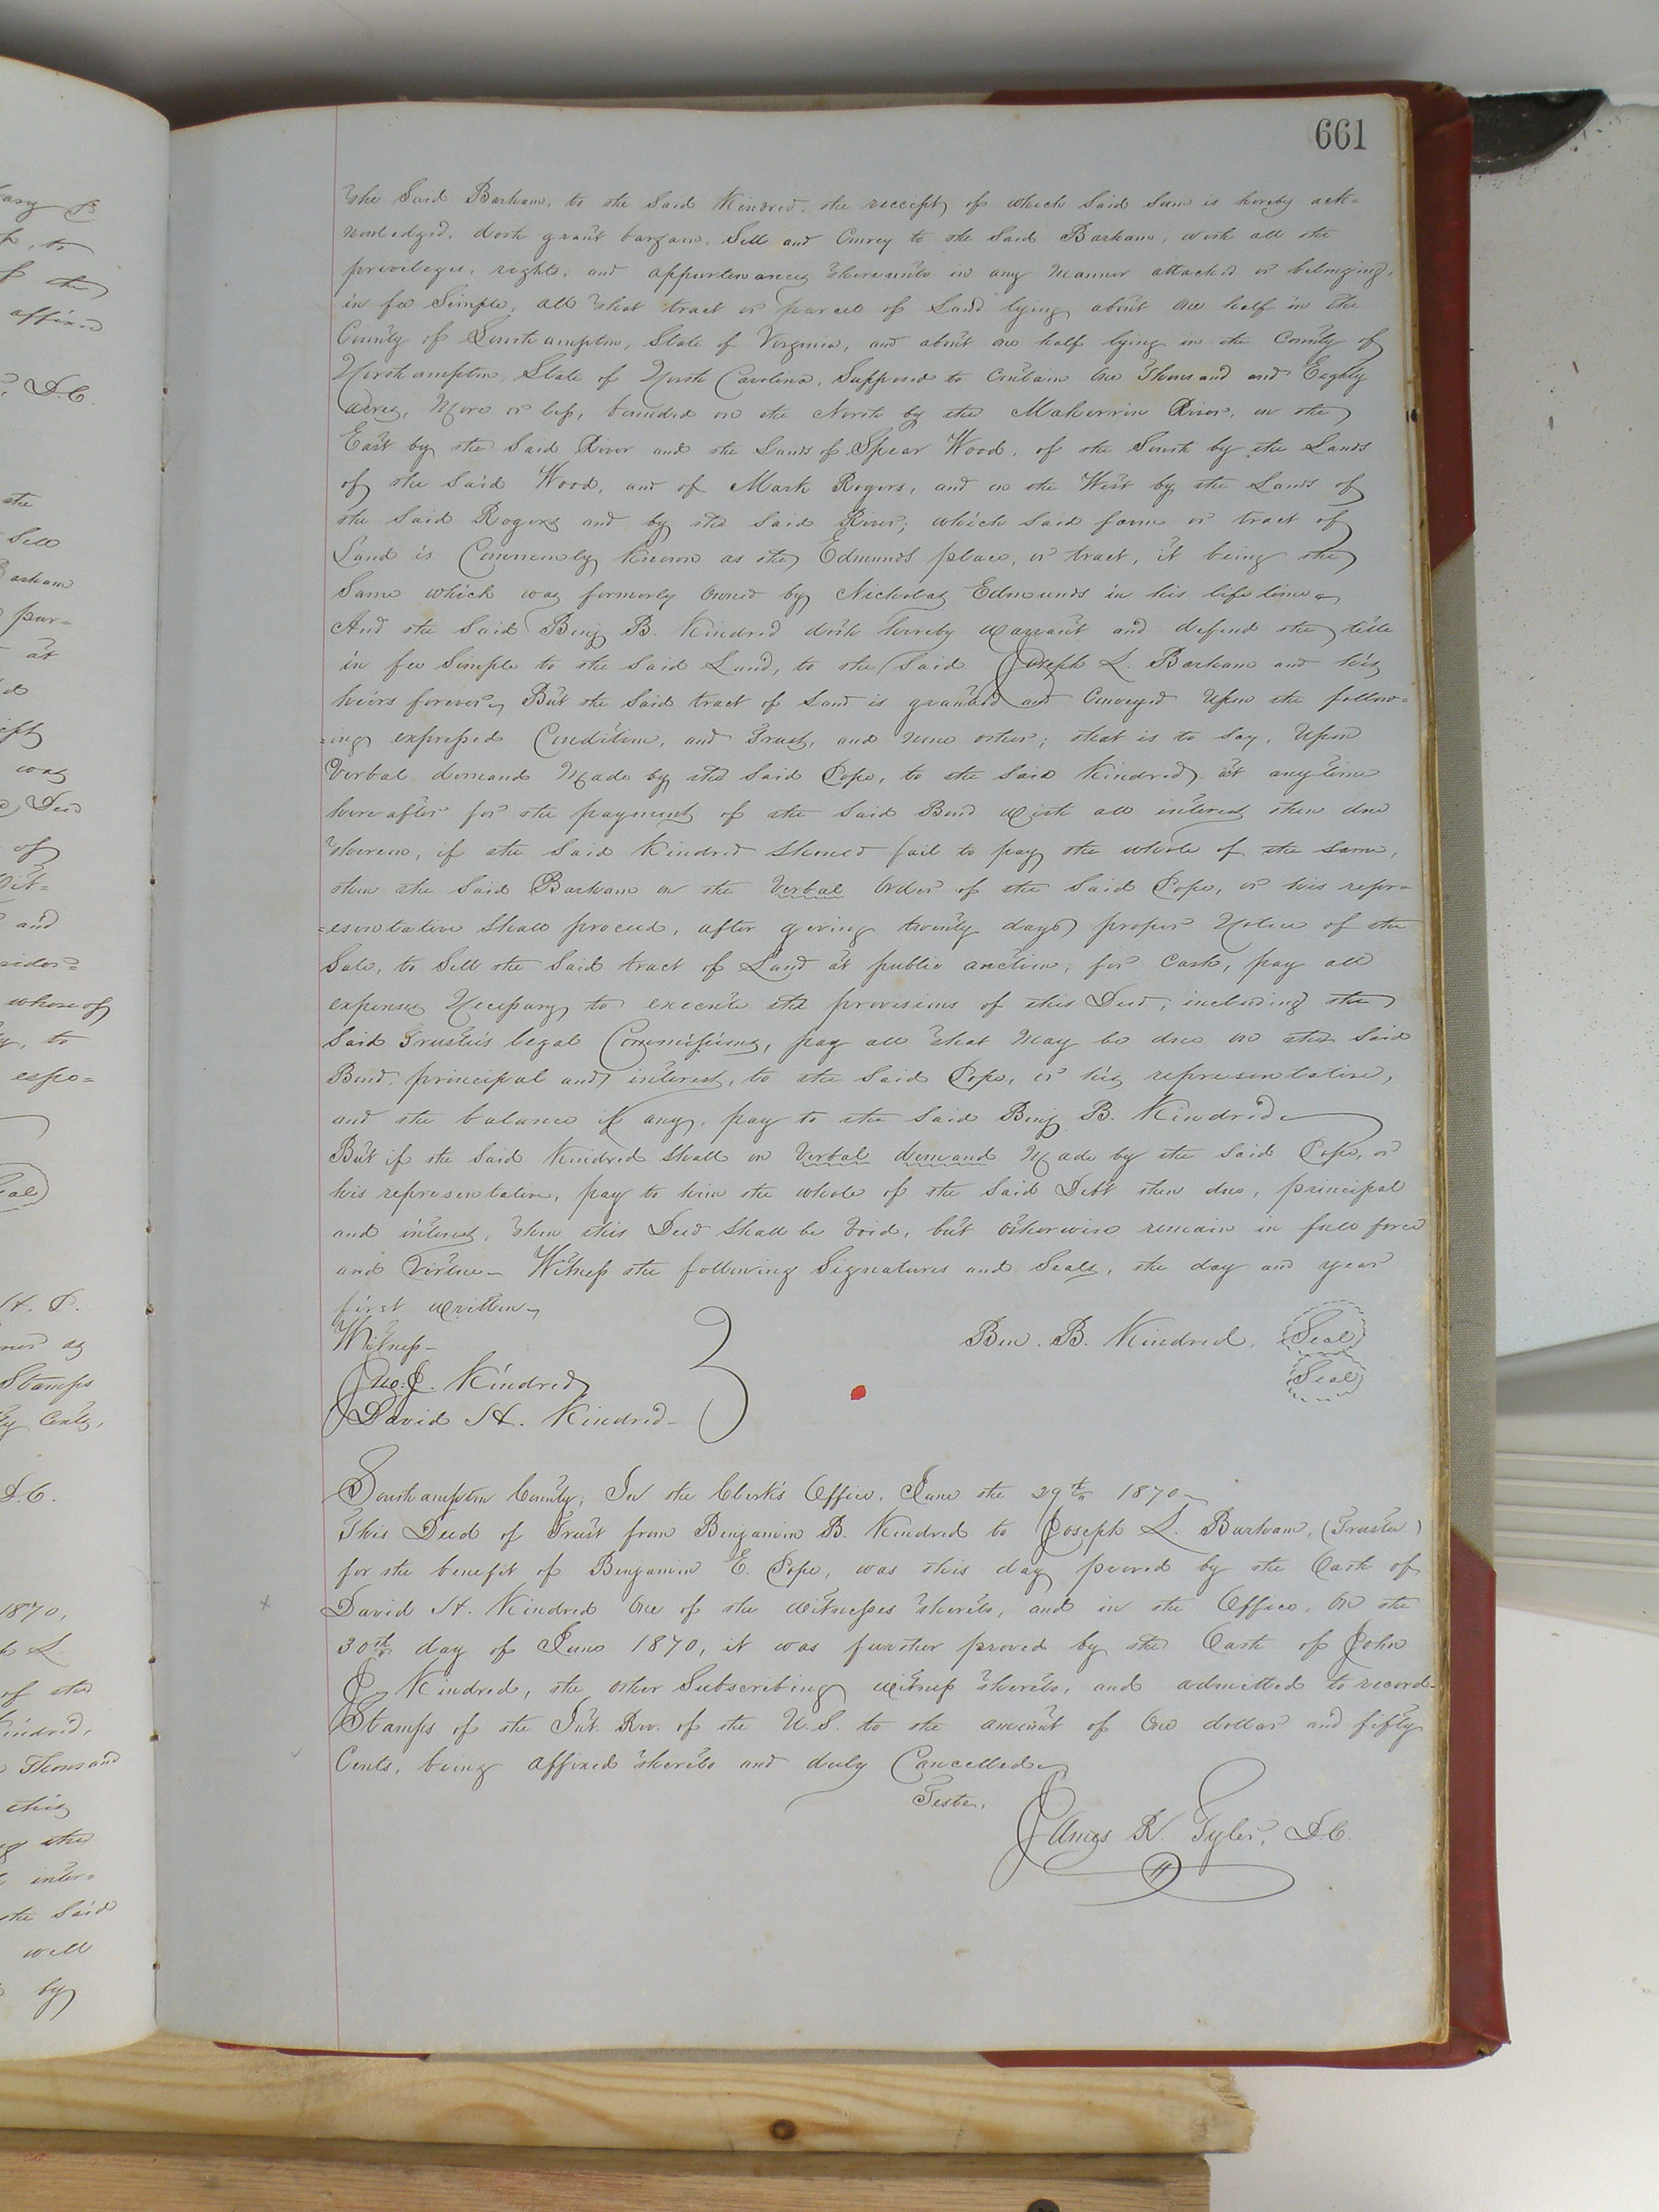 661
the Said Barham, to the Said Kindred, the receipt of which Said Sum is hereby ack=
nowledged, doth grant bargain, Sell and Convey to the Said Barham, with all the
privileges, rights, and appurtenances thereunto in any manner attached or belonging,
in fee Simple, all that tract or parcel of Land lying about one half in the
County of Southampton, State of Virginia, and about one half lying in the County of
Northampton, State of North Carolina, Supposed to Contain One Thousand and Eighty
Acres, More or less, bounded on the North by the Maherrin River, on the
East by the Said River and the Lands of Spear Wood, of the South by the Lands
of the Said Wood, and of Mark Rogers, and on the West by the Lands of
the Said Rogers and by the Said River; which Said farm or tract of
Land is Commonly known as the Edmunds place, or tract, it being the
Same which was formerly Owned by Nicholas Edmunds in his life time
And the Said Benj B. Kindred doth hereby warrant and defend the title
in fee Simple to the Said Land, to the Said Joseph L. Barham and his
heirs forever, But the Said tract of Land is granted and Conveyed Upon the follow=
=ing expressed Condition, and Trust, and none other; that is to Say, Upon
Verbal demand Made by the Said Pope, to the Said Kindred at any time
hereafter for the payment of the Said Bond with all interest then due
thereon, if the Said Kindred Should fail to pay the whole of the Same,
then the Said Barham on the Verbal Order of the Said Pope, or his repr=
=esentative Shall proceed, after giving twenty days proper Notice of the
Sale, to Sell the Said tract of Land at public auction, for Cash, pay all
expenses Necessary to execute the provisions of this Deed, including the
Said Trustee's legal Commissions, pay all that May be due on the Said
Bond, principal and interest, to the Said Pope, or his representative,
and the balance if any, pay to the Said Benj B. Kindred
But if the Said Kindred Shall on Verbal demand Made by the Said Pope, or
his representative, pay to him the whole of the Said Debt then due, principal
and interest, then this Deed Shall be Void, but Otherwise remain in full force
and Virtue_ Witness the following Signatures and Seals, the day and year
first written,
Witness_
Ben. B. Kindred. Seal
Jno. J. Kindred
Seal
David H. Kindred_
Southampton County; In the Clerk's Office, June the 29th 1870_
This Deed of Trust from Benjamin B. Kindred to Joseph L. Barham, (Trustee)
for the benefit of Benjamin E. Pope, was this day proved by the Oath of
David H. Kindred One of the Witnesses thereto, and in the Office, On the
30th day of June 1870, it was further proved by the Oath of John
J. Kindred, the other Subscribing witness thereto, and admitted to record_
Stamps of the Int. Rev. of the U.S. to the amount of One dollar and fifty
Cents, being affixed thereto and duly Cancelled
Teste,
James R. Tyler, D.C.